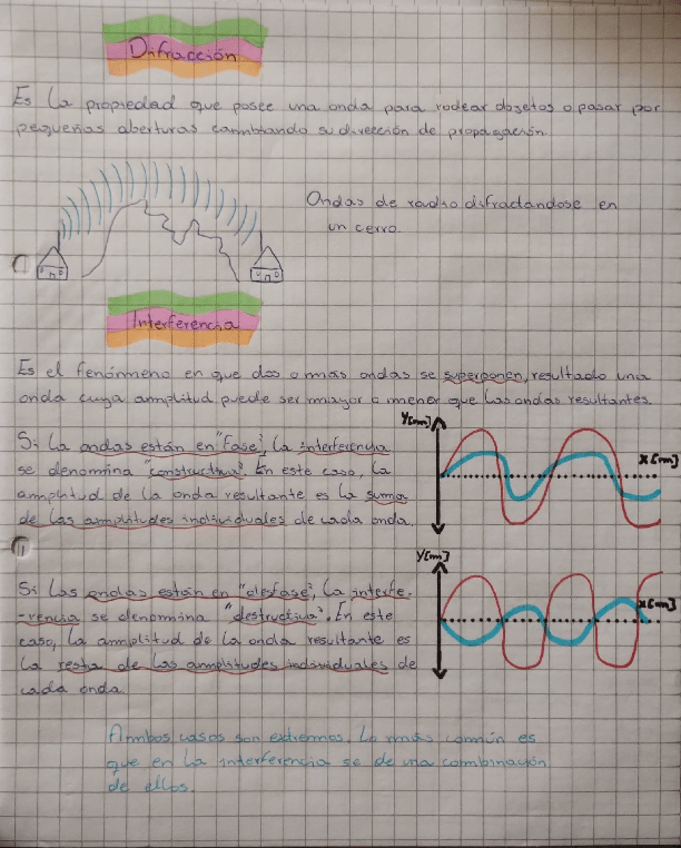 Difracción
Es la propiedad que posee una onda para rodear objetos o pasar por
pequeñas aberturas cambiando su dirección de propagación.
Ondas de radio difractandose en
un cerro.
Interferencia
Es el fenómeno en que dos o más ondas se superponen, resultado una
onda cuya amplitud puede ser mayor o menor que las ondas resultantes.
Y[m]
X[m]
Si la ondas están en "fase", la interferencia
se denomina "constructiva". En este caso, la
amplitud de la onda resultante es la suma
de las amplitudes individuales de cada onda.
Y[m]
X[m]
Si las ondas están en "desfase", la interfe-
-rencia se denomina "destructiva". En este
caso, la amplitud de la onda resultante es
la resta de las amplitudes individuales de
cada onda.
Ambos casos son extremos. Lo más común es
que en la interferencia se de una combinación
de ellos.